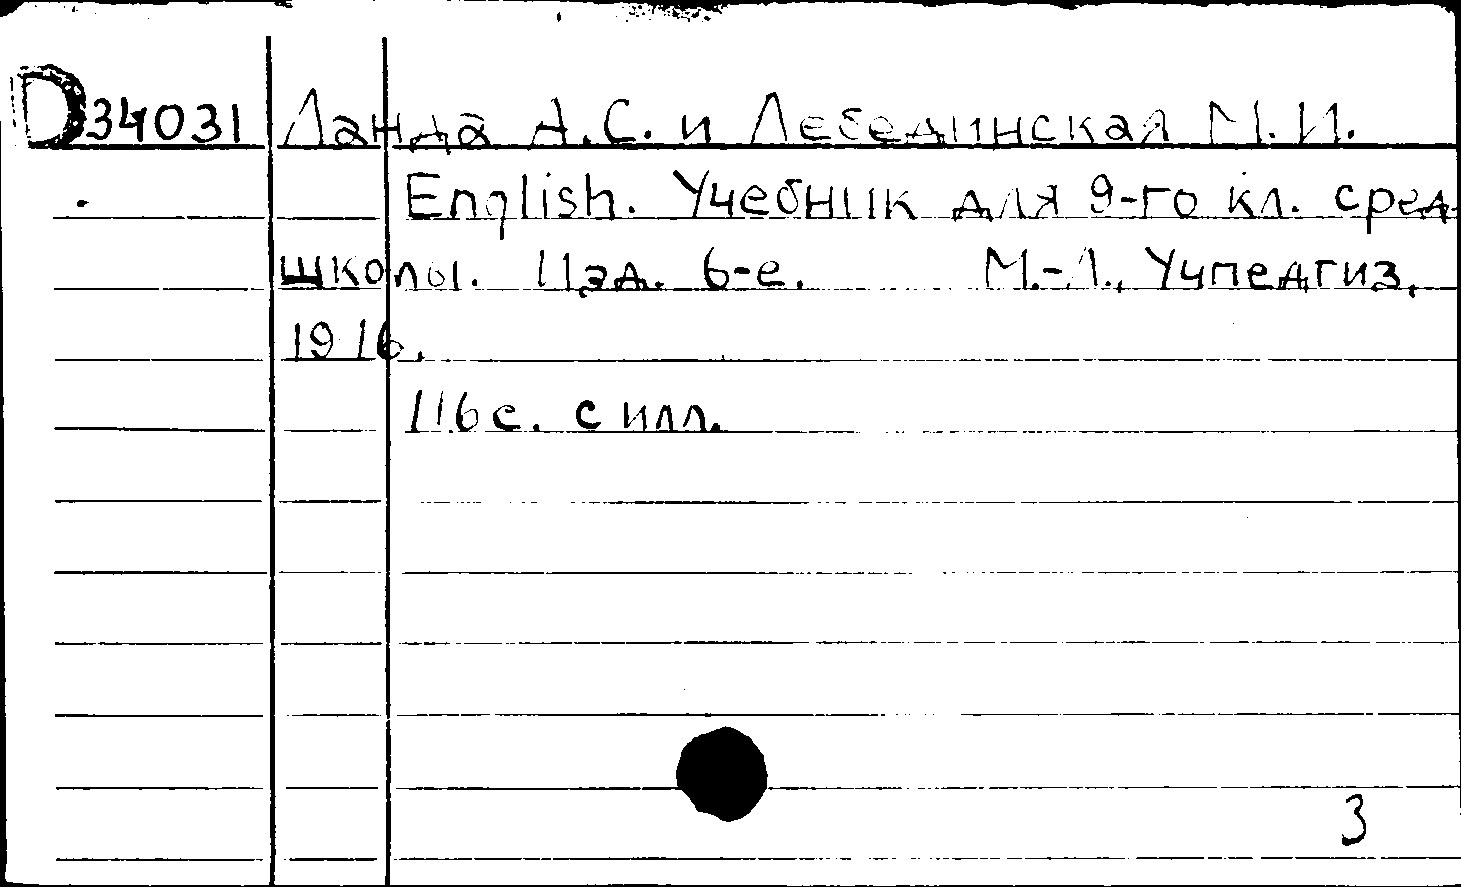 D34031 Ланда А.С. и Лебединская М.И.
English. Учебник для 9-го кл. сред.
школы. Изд. 6-е. М.-Л., Учпедгиз,
1946.
116 с. с илл.
3